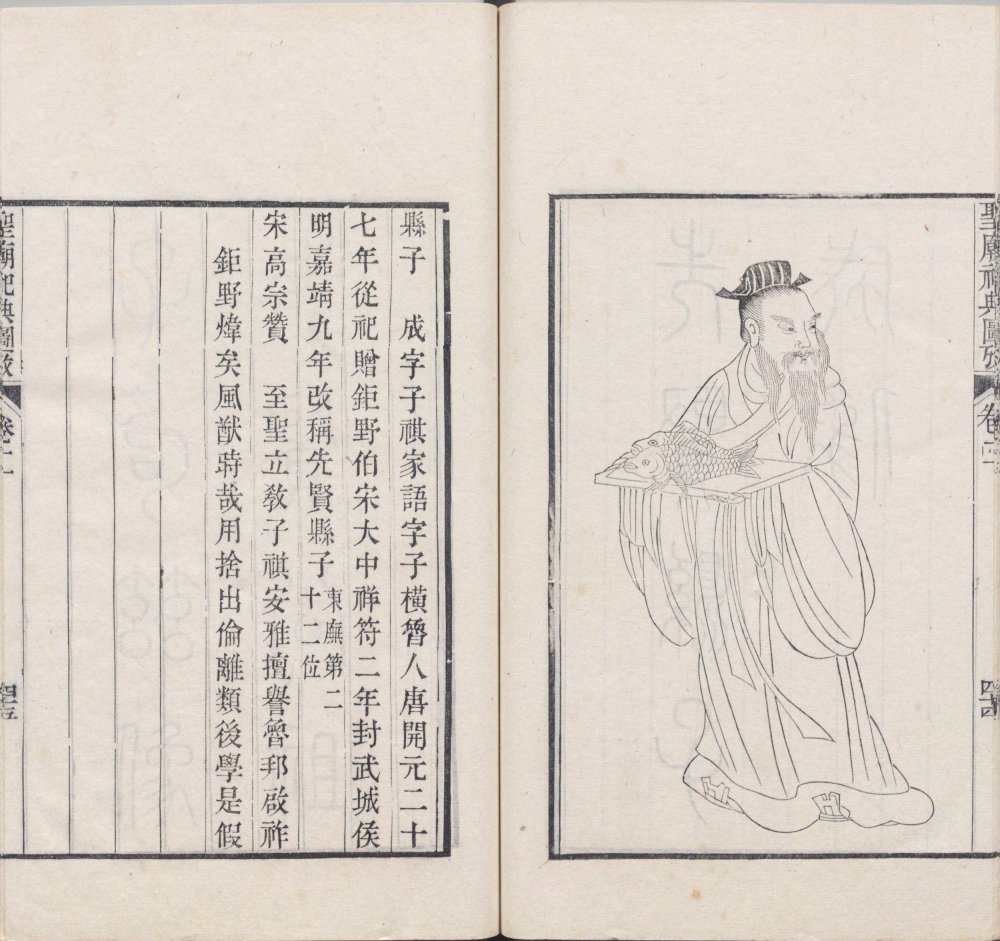 聖廟祀典圖攷 卷二
縣子　成字子祺家語字子橫魯人唐開元二十
七年從祀贈鉅野伯宋大中祥符二年封武城侯
明嘉靖九年改稱先賢縣子東廡第二十二位
宋高宗贊　至聖立教子祺安雅擅譽魯邦啟祚
鉅野煒矣風猷時哉用捨出倫離類後學是假
聖廟祀典圖攷 卷二